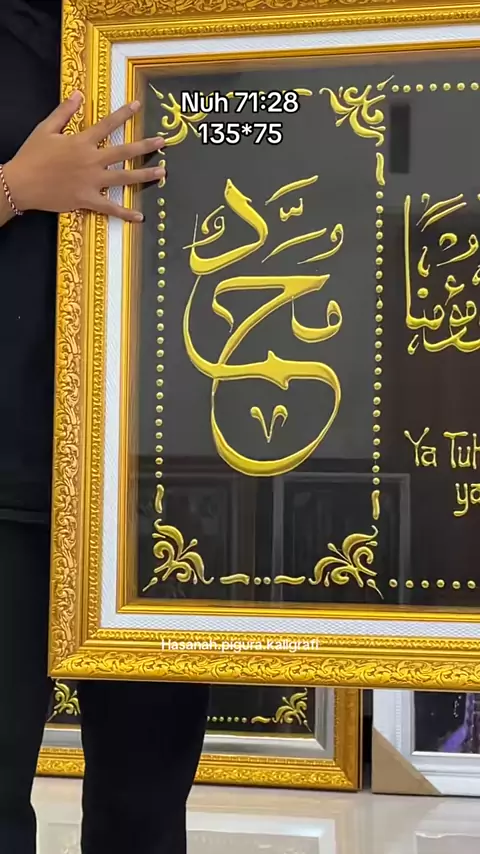 Nuh 71:28
135*75
محمد
مؤمنا
Ya Tuh
ya
Hasanah.pigura.kaligrafi